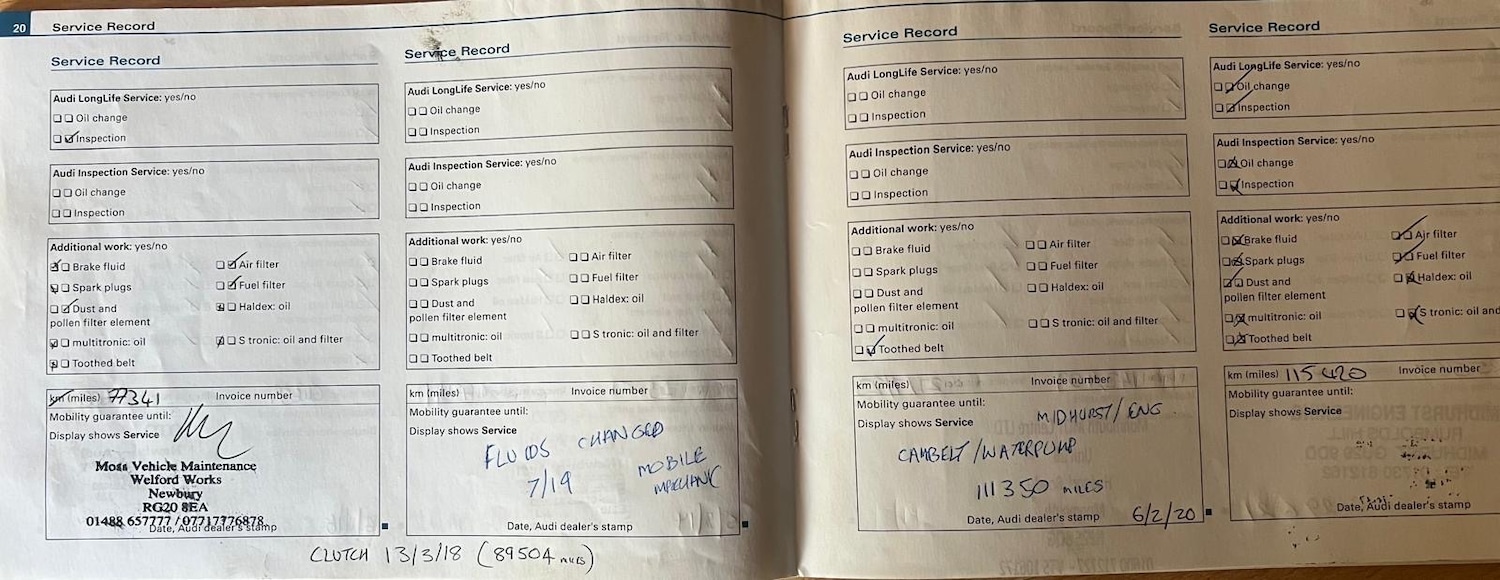 20
Service Record
Service Record
Audi LongLife Service: yes/no
Oil change
Inspection
Audi Inspection Service: yes/no
Oil change
Inspection
Additional work: yes/no
Brake fluid
Air filter
Spark plugs
Fuel filter
Dust and
pollen filter element
Haldex: oil
multitronic: oil
S tronic: oil and filter
Toothed belt
km (miles) 77341
Invoice number
Mobility guarantee until:
Display shows Service
Moss Vehicle Maintenance
Welford Works
Newbury
RG20 8EA
01488 657777 / 07717776878
Date, Audi dealer's stamp
CLUTCH 13/3/18 (89504 MILES)
Service Record
Audi LongLife Service: yes/no
Oil change
Inspection
Audi Inspection Service: yes/no
Oil change
Inspection
Additional work: yes/no
Brake fluid
Air filter
Spark plugs
Fuel filter
Dust and
pollen filter element
Haldex: oil
multitronic: oil
S tronic: oil and filter
Toothed belt
km (miles)
Invoice number
Mobility guarantee until:
Display shows Service
FLUIDS CHANGED
7/19 MOBILE
MECHANIC
Date, Audi dealer's stamp
Service Record
Audi LongLife Service: yes/no
Oil change
Inspection
Audi Inspection Service: yes/no
Oil change
Inspection
Additional work: yes/no
Brake fluid
Air filter
Spark plugs
Fuel filter
Dust and
pollen filter element
Haldex: oil
multitronic: oil
S tronic: oil and filter
Toothed belt
km (miles)
Invoice number
Mobility guarantee until:
Display shows Service
MIDHURST/ENG
CAMBELT/WATERPUMP
111350 MILES
Date, Audi dealer's stamp 6/2/20
Service Record
Audi LongLife Service: yes/no
Oil change
Inspection
Audi Inspection Service: yes/no
Oil change
Inspection
Additional work: yes/no
Brake fluid
Air filter
Spark plugs
Fuel filter
Dust and
pollen filter element
Haldex: oil
multitronic: oil
S tronic: oil and
Toothed belt
km (miles) 115420
Invoice number
Mobility guarantee until:
Display shows Service
Date, Audi dealer's stamp